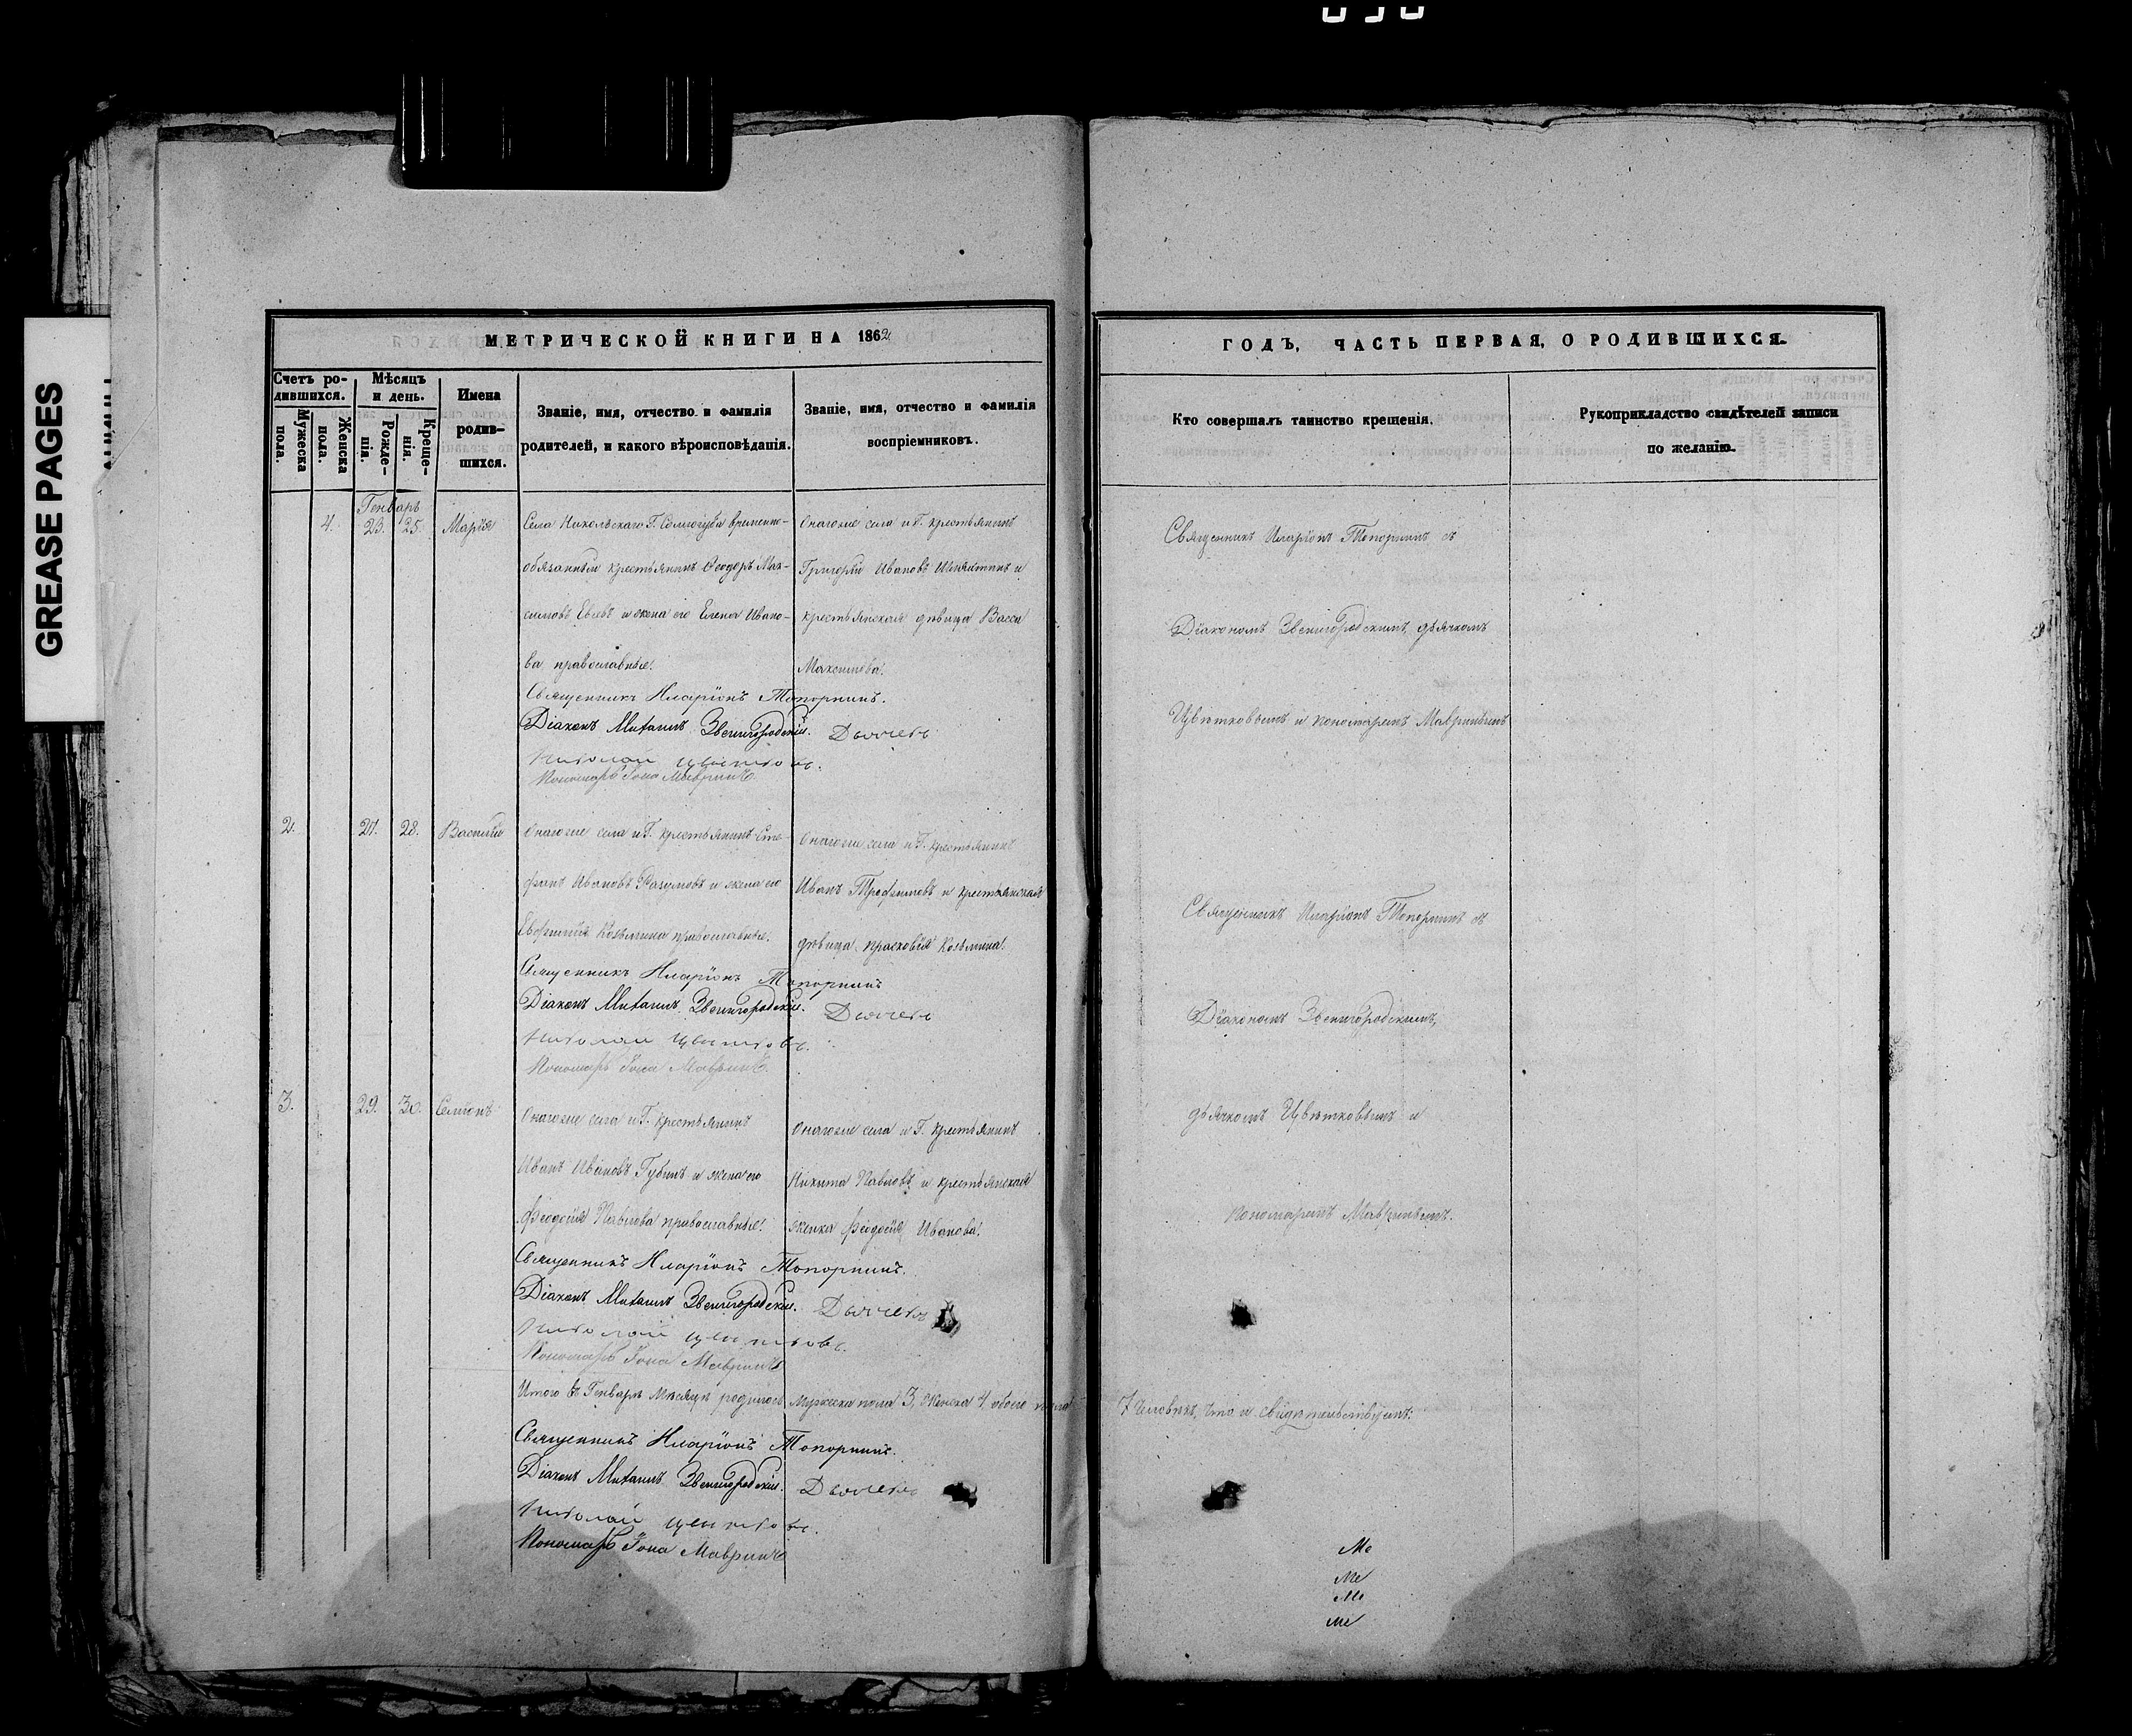 GREASE PAGES
МЕТРИЧЕСКОЙ КНИГИ НА 1862
Счетъ родившихся.
Мужеска пола.
Женска пола.
Мѣсяцъ и день.
Рожденія.
Крещенія.
Имена родившихся.
Званіе, имя, отчество и фамилія
родителей, и какого вѣроисповѣданія.
Званіе, имя, отчество и фамилія
воспріемниковъ.
Генварь
4. 23. 25. Марія
Села Никольскаго Г. временно-
обязанный крестьянинъ Ѳеодоръ Мак-
симовъ и жена его Елена Ивано-
ва православные.
Онагоже села и Г. крестьянинъ
Григорій Ивановъ и
крестьянская дѣвица Васса
Максимова.
Священникъ Иларіонъ Топорнинъ.
Діаконъ Михаилъ Звенигородскій. Дьячекъ
Николай Цветковъ.
Пономарь Іона Мавринъ
2. 27. 28. Василій
Онагоже села и Г. крестьянинъ Сте-
фанъ Ивановъ Разумовъ и жена его
Евфимія Козьмина православные.
Онагоже села и Г. крестьянинъ
Иванъ Трофимовъ и крестьянская
дѣвица Прасковія Козьмина.
Священникъ Иларіонъ Топорнинъ
Діаконъ Михаилъ Звенигородскій. Дьячекъ
Николай Цветковъ.
Пономарь Іона Мавринъ.
3. 29. 30. Симеонъ
Онагоже села и Г. крестьянинъ
Иванъ Ивановъ Губинъ и жена его
Ѳеодосія Павлова православные.
Онагоже села и Г. крестьянинъ
Никита Павловъ и крестьянская
женка Ѳеодосія Иванова.
Священникъ Иларіонъ Топорнинъ.
Діаконъ Михаилъ Звенигородскій. Дьячекъ
Николай Цветковъ.
Пономарь Іона Мавринъ
Итого въ Генварѣ мѣсяцѣ родилось мужеска пола 3, женска 4, обоего пола
Священникъ Иларіонъ Топорнинъ.
Діаконъ Михаилъ Звенигородскій. Дьячекъ
Николай Цветковъ.
Пономарь Іона Мавринъ
ГОДЪ, ЧАСТЬ ПЕРВАЯ, О РОДИВШИХСЯ.
Кто совершалъ таинство крещенія.
Рукоприкладство свидѣтелей записи
по желанію.
Священникъ Иларіонъ Топорнинъ съ
Діакономъ Звенигородскимъ, дьячкомъ
Цвѣтковымъ и пономаремъ Мавринымъ
Священникъ Иларіонъ Топорнинъ съ
Діакономъ Звенигородскимъ,
дьячкомъ Цвѣтковымъ и
пономаремъ Мавринымъ.
7 человѣкъ, что и свидѣтельствуемъ.
Ме
Ме
Ме
Ме